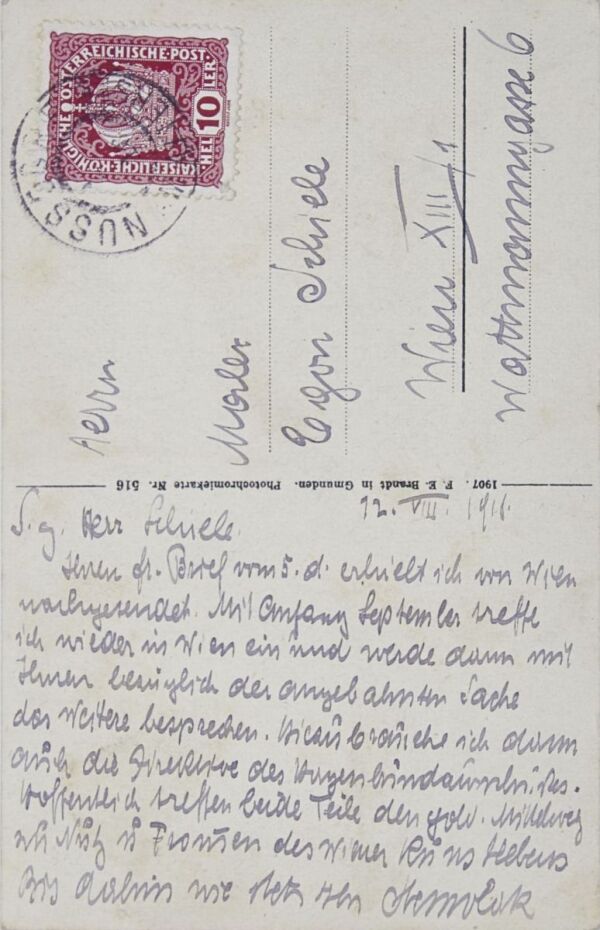 KAISERLICHE·KÖNIGLICHE ÖSTERREICHISCHE·POST
HEL 10 LER
NUSS
Herrn
Maler
Egon Schiele
Wien XIII/1
Wattmanngasse 6
1907. F. E. Brandt in Gmunden. Photochromiekarte Nr. 516
12. VIII. 1918.
S. g. Herr Schiele.
Ihren fr. Brief vom 5. d. erhielt ich von Wien
nachgesendet. Mit Anfang September treffe
ich wieder in Wien ein und werde dann mit
Ihnen bezüglich der angebahnten Sache
das Weitere besprechen. Hiezu brauche ich dann
auch die Direktive des Hagenbundausschusses.
Hoffentlich treffen beide Teile den gold. Mittelweg
zu Nutz u Frommen des Wiener Kunstlebens
Bis dahin wie stets Ihr